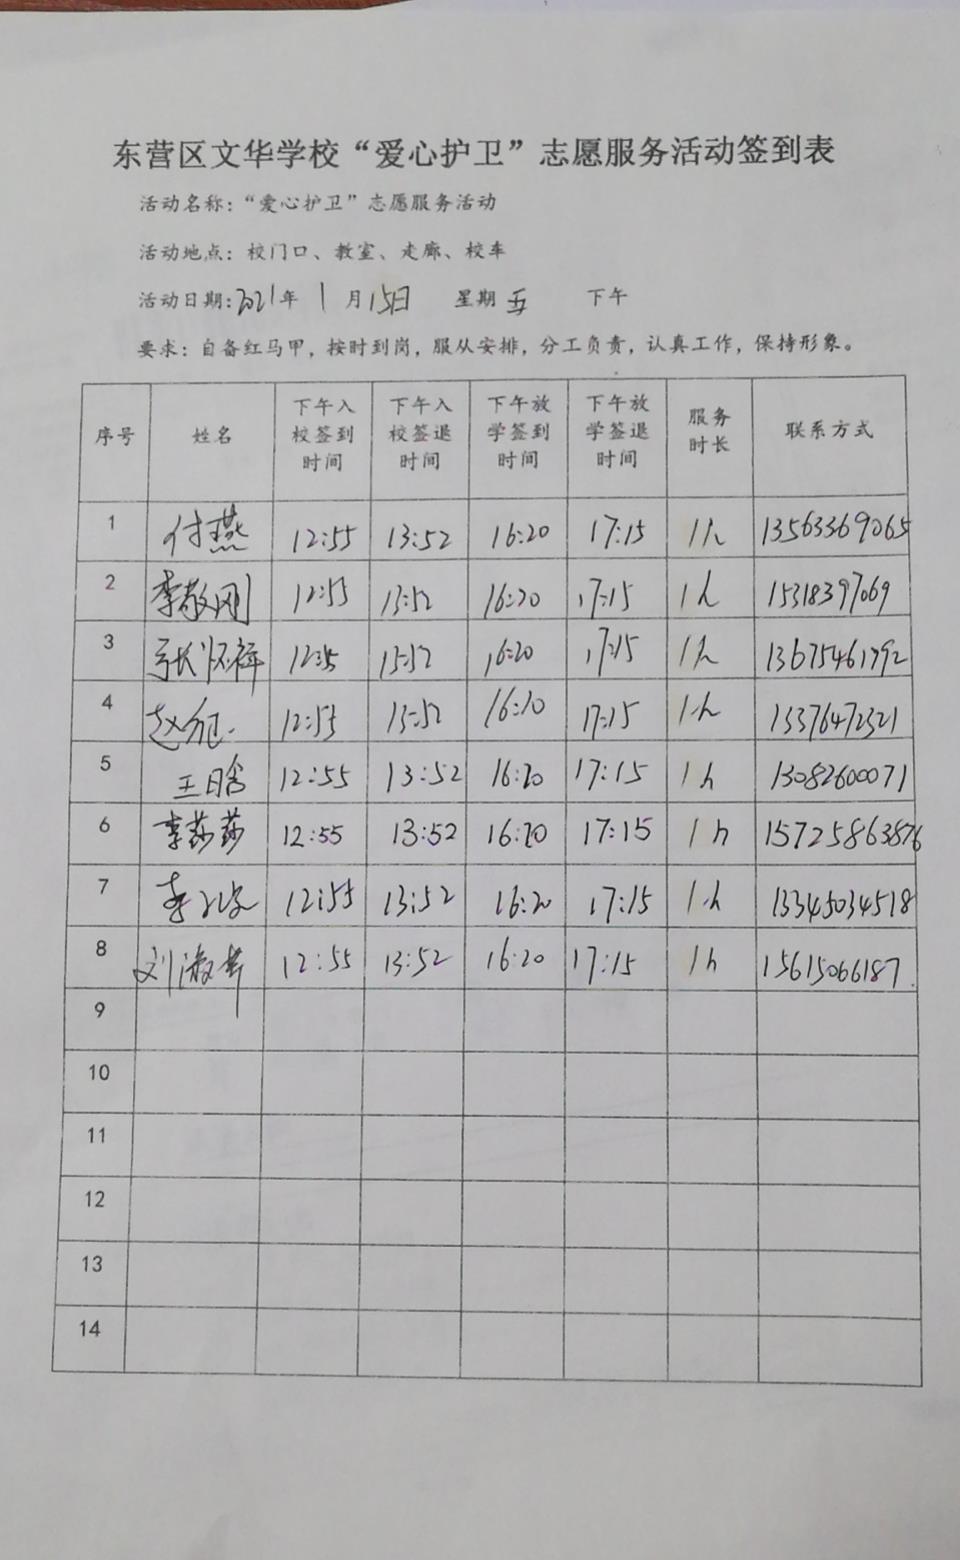 东营区文华学校“爱心护卫”志愿服务活动签到表
活动名称：“爱心护卫”志愿服务活动
活动地点：校门口、教室、走廊、校车
活动日期：2021年 1月15日 星期五 下午
要求：自备红马甲，按时到岗，服从安排，分工负责，认真工作，保持形象。
序号 姓名 下午入校签到时间 下午入校签退时间 下午放学签到时间 下午放学签退时间 服务时长 联系方式
1 付燕 12:55 13:52 16:20 17:15 1h 13563369065
2 李敬刚 12:55 13:52 16:20 17:15 1h 15318397069
3 张怀祥 12:55 13:52 16:20 17:15 1h 13675461792
4 赵 12:55 13:52 16:20 17:15 1h 13376472321
5 王日含 12:55 13:52 16:20 17:15 1h 13082600071
6 李莎莎 12:55 13:52 16:20 17:15 1h 15725863876
7 李 12:55 13:52 16:20 17:15 1h 13345034518
8 刘淑 12:55 13:52 16:20 17:15 1h 15615066187
9
10
11
12
13
14